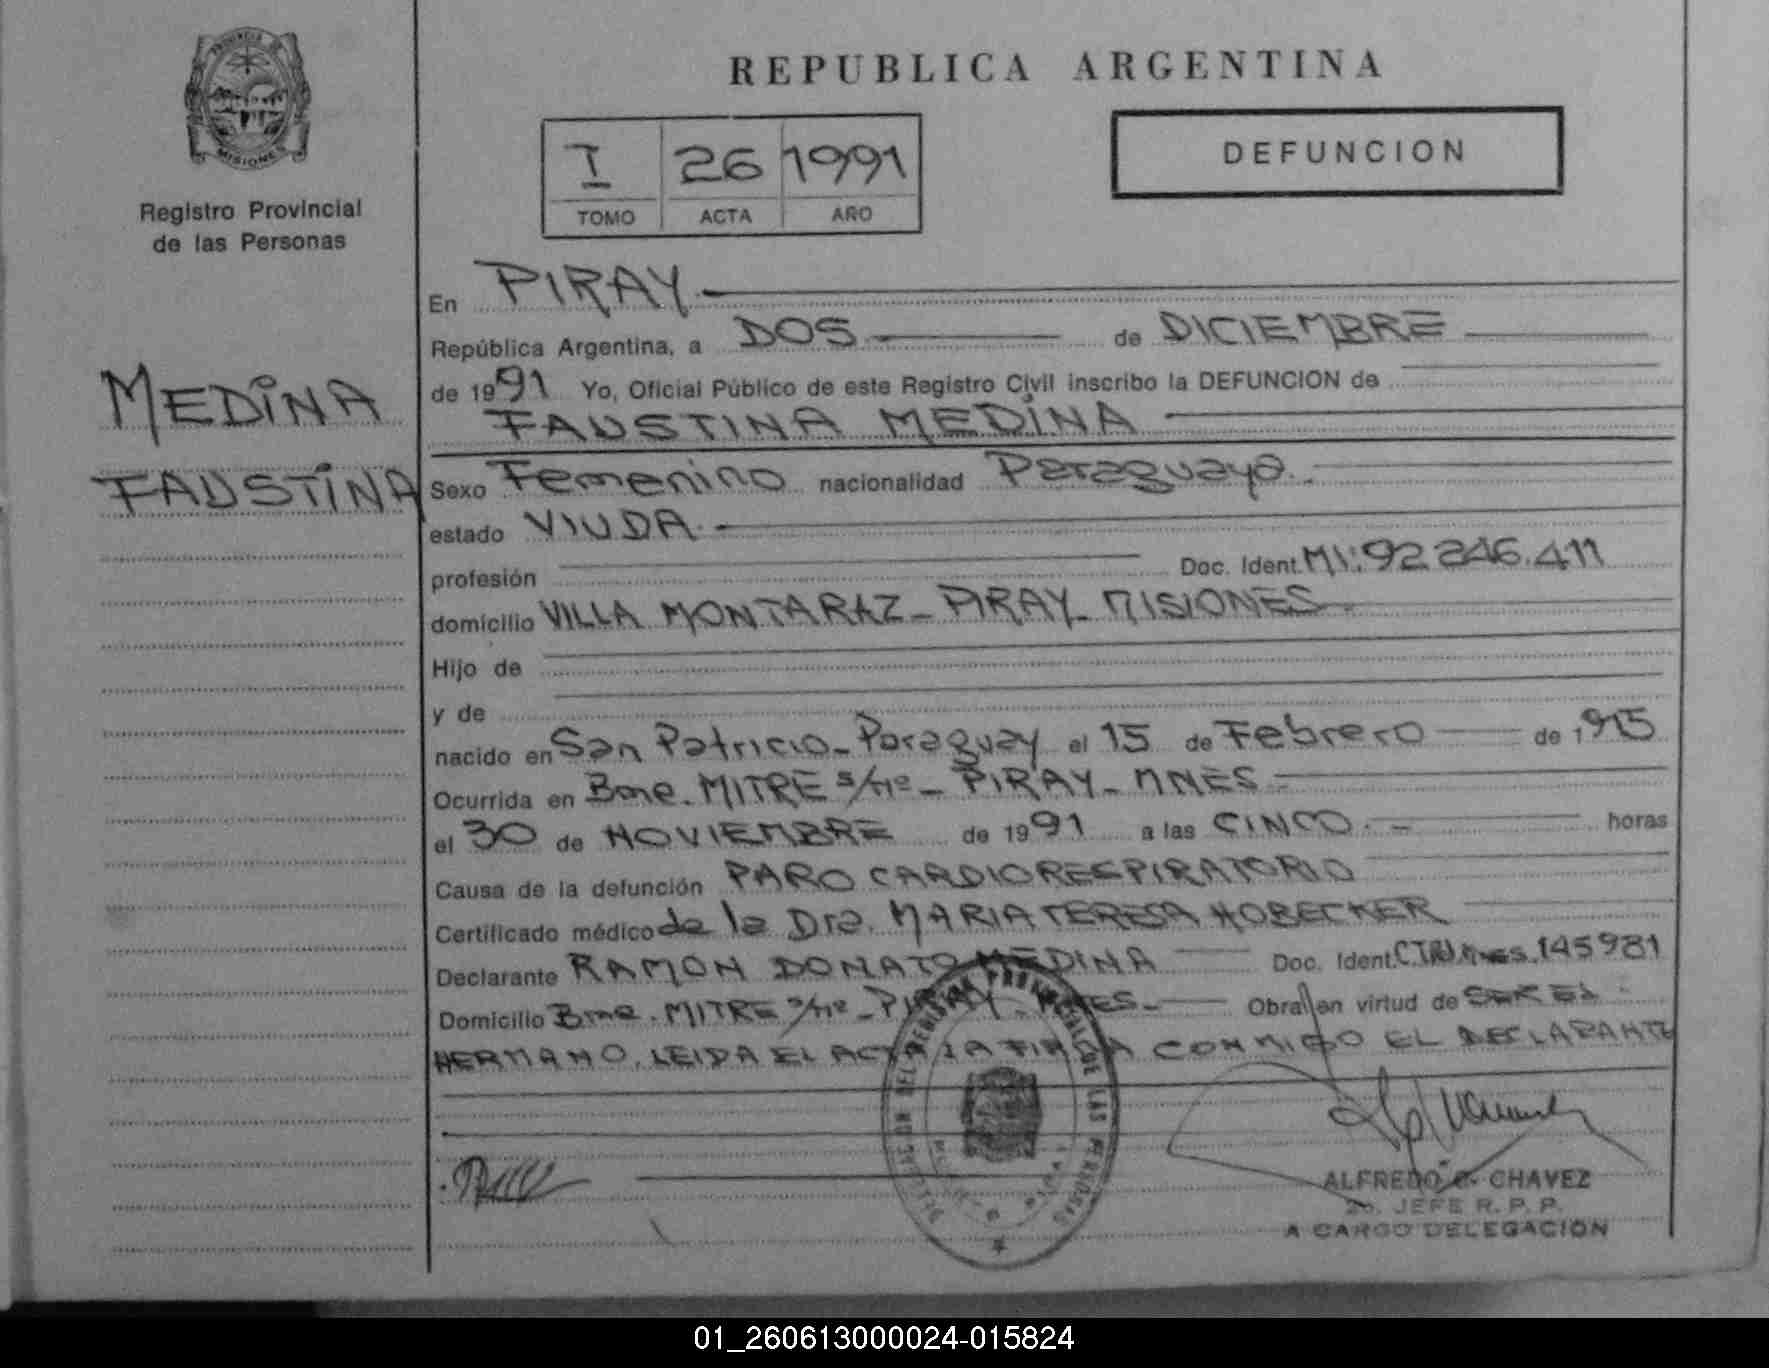 PROVINCIA DE
MISIONES
Registro Provincial
de las Personas
MEDINA
FAUSTINA
REPUBLICA ARGENTINA
I 26 1991
TOMO ACTA AÑO
DEFUNCION
En PIRAY
República Argentina, a DOS de DICIEMBRE
de 1991 Yo, Oficial Público de este Registro Civil inscribo la DEFUNCION de
FAUSTINA MEDINA
Sexo Femenino nacionalidad Paraguaya
estado VIUDA
profesión Doc. Ident. M I: 92 246.411
domicilio VILLA MONTARAZ - PIRAY - MISIONES
Hijo de
y de
nacido en San Patricio - Paraguay el 15 de Febrero de 1915
Ocurrida en Bme. MITRE s/nº - PIRAY - MNES
el 30 de NOVIEMBRE de 1991 a las CINCO horas
Causa de la defunción PARO CARDIORESPIRATORIO
Certificado médico de la Dra. MARIA TERESA HOBECKER
Declarante RAMON DONATO MEDINA Doc. Ident. 145981
Domicilio Bme. MITRE s/nº - PIRAY - MNES - Obra en virtud de SER EL
HERMANO. LEIDA EL ACTA LA FIRMA CONMIGO EL DECLARANTE
DELEGACION DEL REGISTRO PROVINCIAL DE LAS PERSONAS
ALFREDO C. CHAVEZ
JEFE R. P. P.
A CARGO DELEGACION
01_260613000024-015824